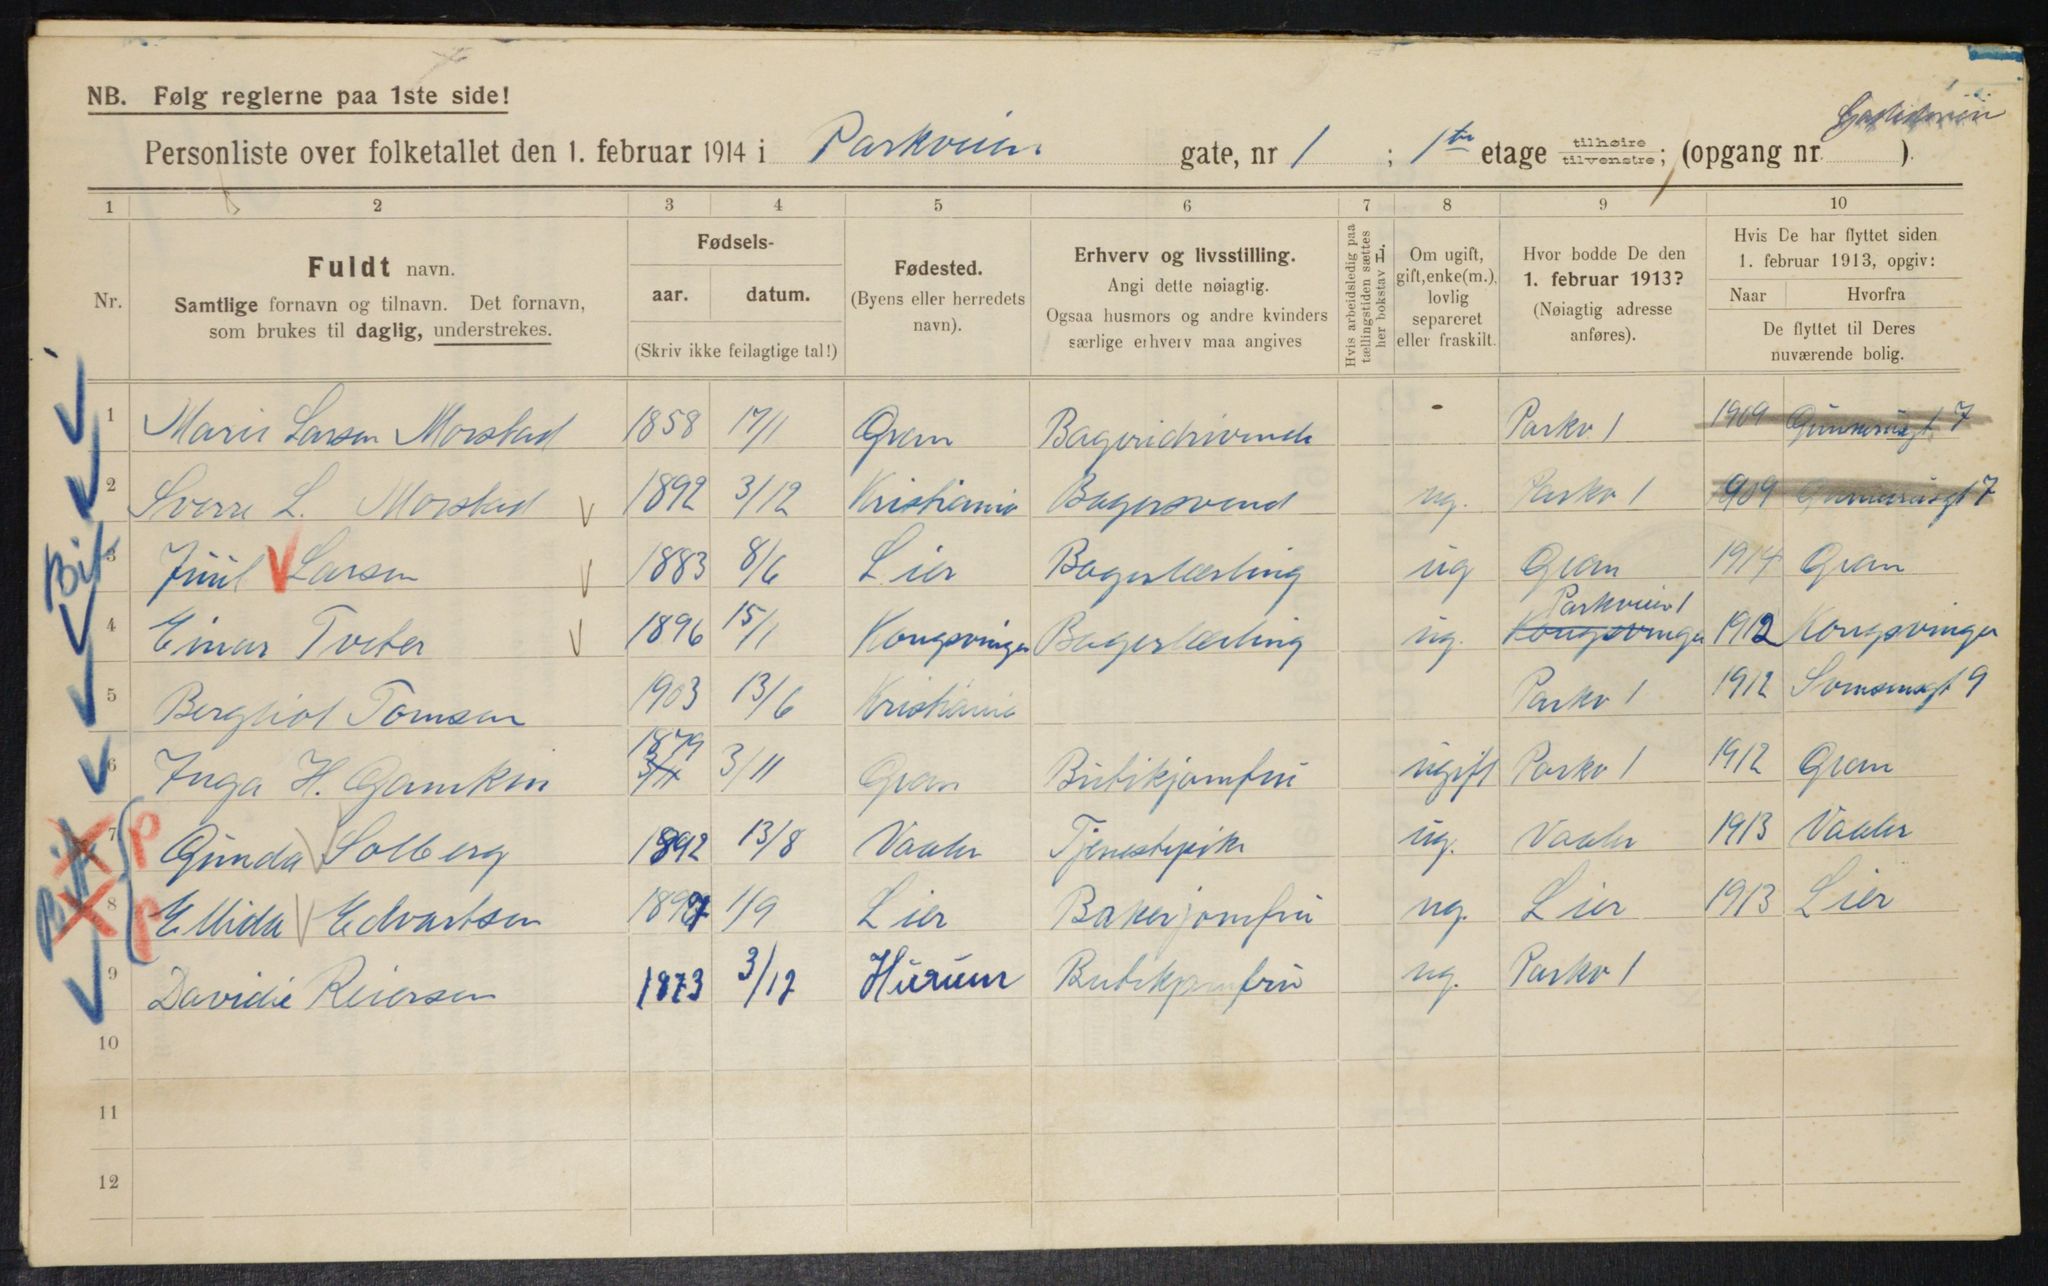 NB. Følg reglerne paa 1ste side!
Personliste over folketallet den 1. februar 1914 i Parkveien gate, nr 1 ; 1ste etage tilhøire tilvenstre; (opgang nr. ).
1 2 3 4 5 6 7 8 9 10
Nr.
Fuldt navn.
Samtlige fornavn og tilnavn. Det fornavn,
som brukes til daglig, understrekes.
Fødsels-
aar. datum.
(Skriv ikke feilagtige tal!)
Fødested.
(Byens eller herredets
navn).
Erhverv og livsstilling.
Angi dette nøiagtig.
Ogsaa husmors og andre kvinders
særlige erhverv maa angives
Hvis arbeidsledig paa
tællingstiden sættes
her bokstav L.
Om ugift,
gift, enke(m.),
lovlig
separeret
eller fraskilt.
Hvor bodde De den
1. februar 1913?
(Nøiagtig adresse
anføres).
Hvis De har flyttet siden
1. februar 1913, opgiv:
Naar Hvorfra
De flyttet til Deres
nuværende bolig.
1 Marie Larsen Morstad 1858 17/1 Gran Bageridrivende - Parkv 1 1909 Gunnerusgt 7
2 Sverre L. Morstad 1892 3/12 Kristiania Bagersvend ug. Parkv 1 1909 Gunnerusgt 7
3 Juul Larsen 1883 8/6 Lier Bagerlærling ug Gran 1914 Gran
Parkveien 1
4 Einar Tveter 1896 15/1 Kongsvinger Bagerlærling ug. Kongsvinger 1912 Kongsvinger
5 Bergliot Tomsen 1903 13/6 Kristiania Parkv 1 1912 9
1879
6 Inga H. 3/11 3/11 Gran Butikjomfru ugift Parkv 1 1912 Gran
7 Gunda Solberg 1892 13/8 Vaaler Tjenestepike ug. Vaaler 1913 Vaaler
8 Ellida Edvartsen 1897 1/9 Lier Bakerjomfru ug. Lier 1913 Lier
9 Davidie Reiersen 1873 3/12 Hurum Butikjomfru ug. Parkv 1
10
11
12